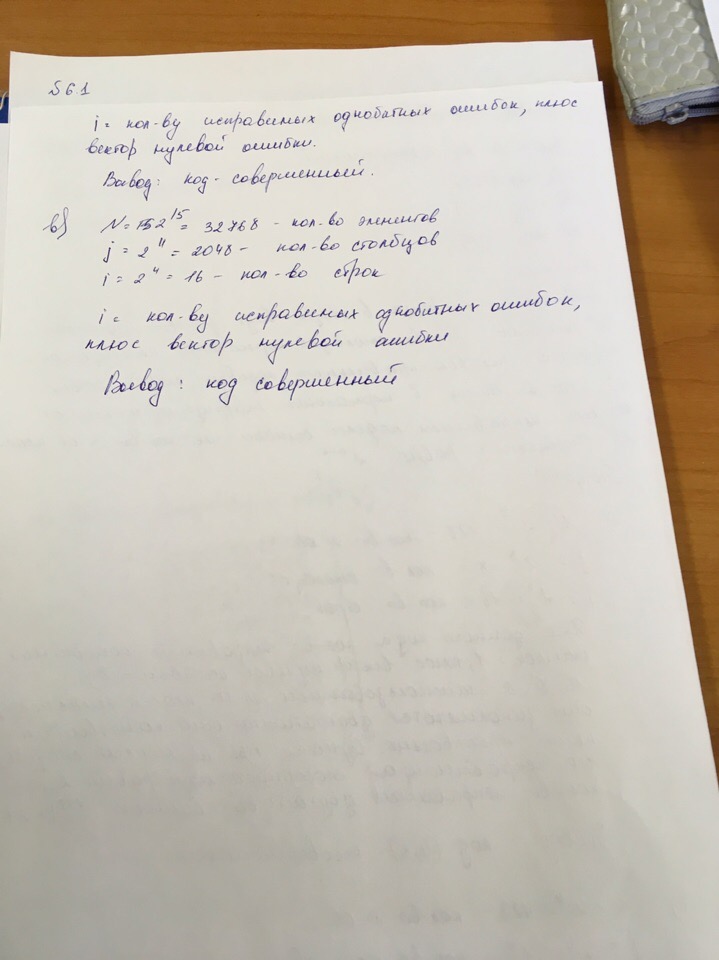 №6.1
i = кол-ву исправимых однобитных ошибок, плюс
вектор нулевой ошибки.
Вывод: код - совершенный.
в) N = 2¹⁵ = 32768 - кол-во элементов
j = 2¹¹ = 2048 - кол-во столбцов
i = 2⁴ = 16 - кол-во строк
i = кол-ву исправимых однобитных ошибок,
плюс вектор нулевой ошибки
Вывод: код совершенный